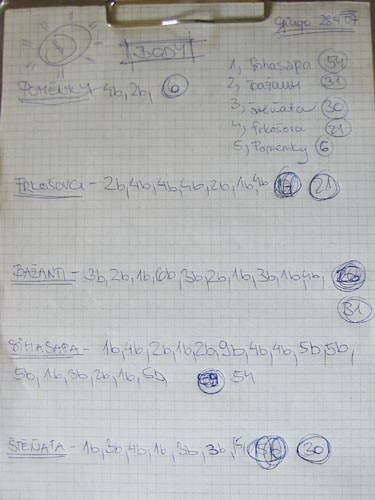 BODY
1, Sihasapa 54
2, Bažanti 31
3, Štěňata 30
4, Frkošova 21
5, Pomněnky 6
POMĚNKY - 4b, 2b, 6
FRKOŠOVCI - 2b, 4b, 4b, 4b, 2b, 1b, 4b 21
BAŽANTI - 3b, 2b, 1b, 6b, 3b, 2b, 1b, 3b, 1b, 4b,
31
SIHASAPA - 1b, 4b, 2b, 1b, 2b, 9b, 4b, 4b, 5b, 5b,
5b, 1b, 3b, 2b, 1b, 5b 54
ŠTĚŇATA - 1b, 3b, 4b, 1b, 3b, 3b, 30